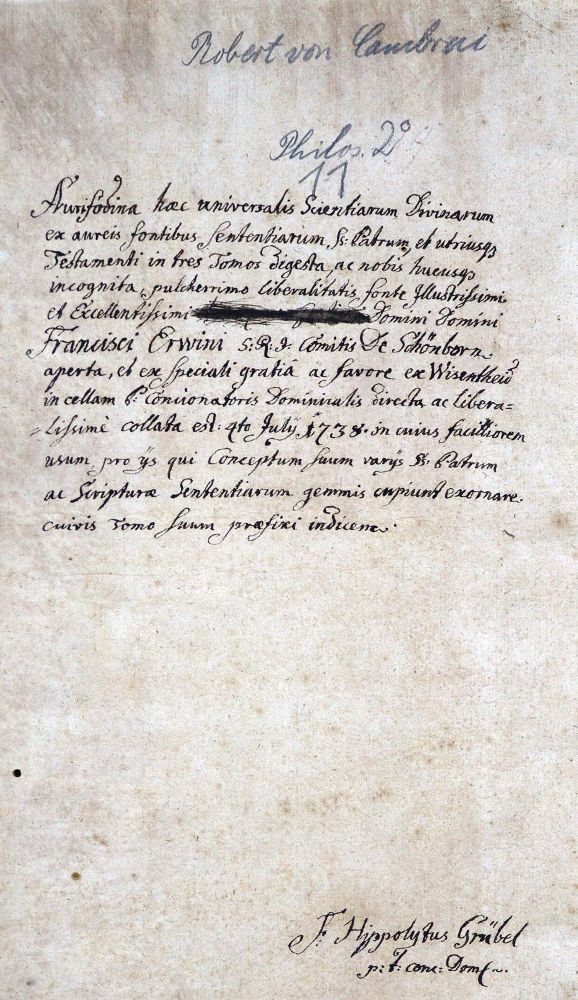 Robert von Cambrai
Philos. 2º
11
Aurifodina hæc universalis Scientiarum Divinarum
ex aureis fontibus Sententiarum, SS: Patrum, et utriusq3
Testamenti in tres Tomos digesta, ac nobis hucusq3
incognita, pulcherrimo Liberalitatis fonte Illustrissimi
et Excellentissimi Domini Domini
Francisci Erwini S: R: I: Comitis De Schönborn
aperta, et ex speciali gratia ac favore ex Wisentheid
in cellam P: Concionatoris Dominicalis directa ac libera=
=lissimè collata est: 4to Julÿ 1738. in cuius faciliorem
usum, pro ÿs qui Conceptum suum varÿs SS: Patrum
ac Scripturæ Sententiarum gemmis cupiunt exornare.
cuivis Tomo suum præfixi indicem.
F: Hippolÿtus Grübel
p: t: conc: Dom